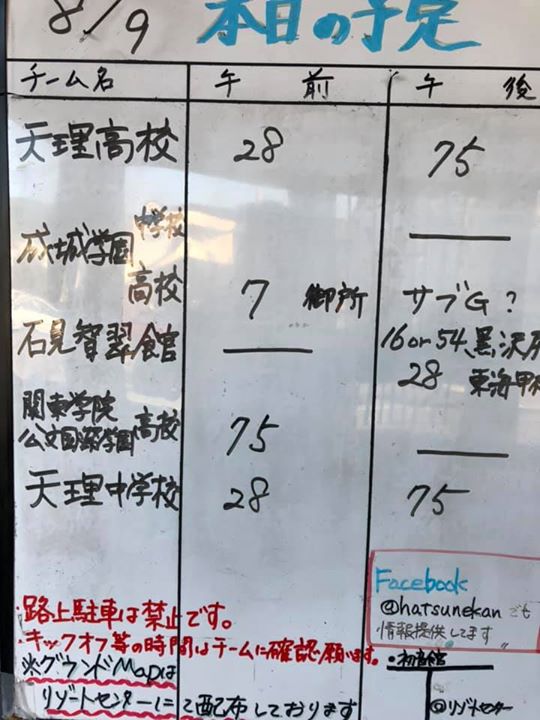 8/9 本日の予定
チーム名 午前 午後
天理高校 28 75
成城学園 中学校 —
高校 7 御所 サブG?
石見智翠館 — 16 or 54 黒沢尻
28 東海甲府
関東学院
公文国際学園 高校 75 —
天理中学校 28 75
Facebook
@hatsunekan でも
情報提供してます
・路上駐車は禁止です。
・キックオフ等の時間はチームに確認願います。
・初音館
※グラウンドMapは
リゾートセンターにて配布しております
@リゾートセンター